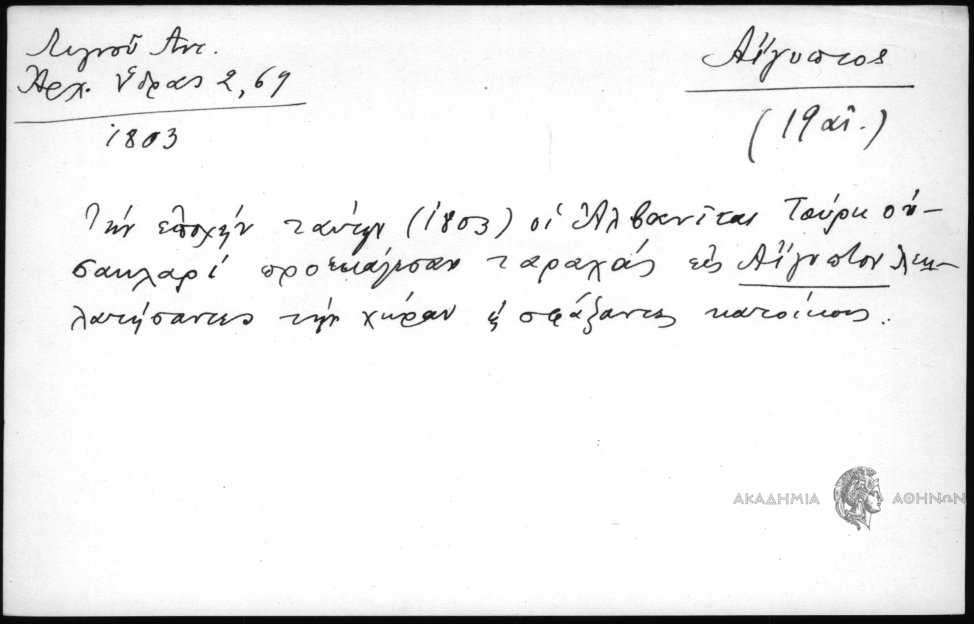 Λιγνοῦ Αντ.
Ἀρχ. Ὕδρας 2, 69
1803
Αἴγυπτος
(19 αἰ.)
Τήν ἐποχήν ταύτην (1803) οἱ Ἀλβανῖται
προεκάλεσαν ταραχάς εἰς Αἴγυπτον λεη-
λατήσαντες τήν χώραν ϗ σφάξαντες κατοίκους.
ΑΚΑΔΗΜΙΑ ΑΘΗΝΩΝ